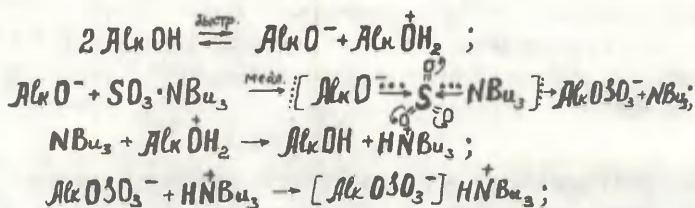 2 Alk OH ⇌ (быстр.) Alk O⁻ + Alk O⁺H₂ ;
Alk O⁻ + SO₃·NBu₃ → (медл.) [Alk O⁻ ⋯ S ⋯ NBu₃] → Alk OSO₃⁻ + NBu₃;
NBu₃ + Alk O⁺H₂ → Alk OH + HN⁺Bu₃ ;
Alk OSO₃⁻ + HN⁺Bu₃ → [Alk OSO₃⁻] HN⁺Bu₃ ;